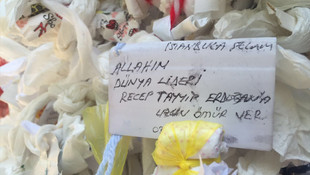 ISTANBULA SELAM
ALLAHIM
DÜNYA LİDERİ
RECEP TAYYİP ERDOĞAN'A
UZUN ÖMÜR VER